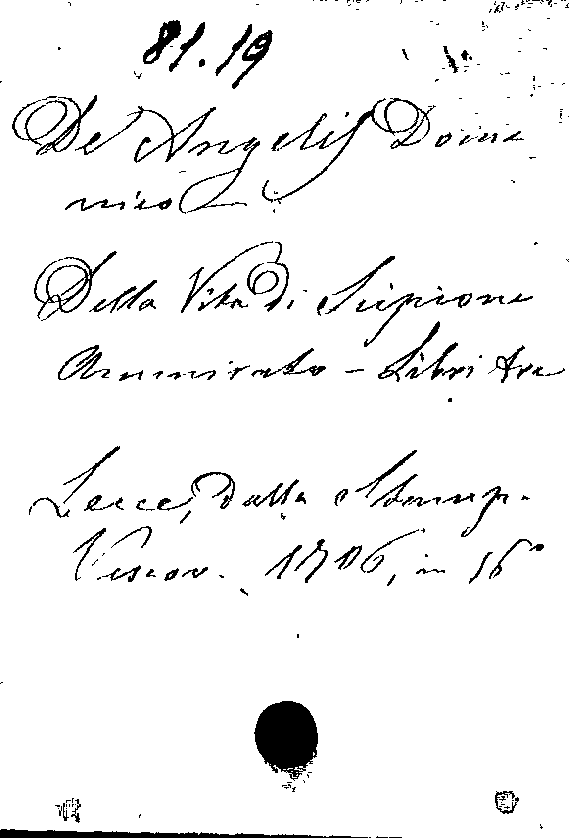 81.19
De Angelis Dome
nico
Della Vita di Scipione
Ammirato - Libri tre
Lecce, dalla Stamp.
Vescov. 1706, in 16°